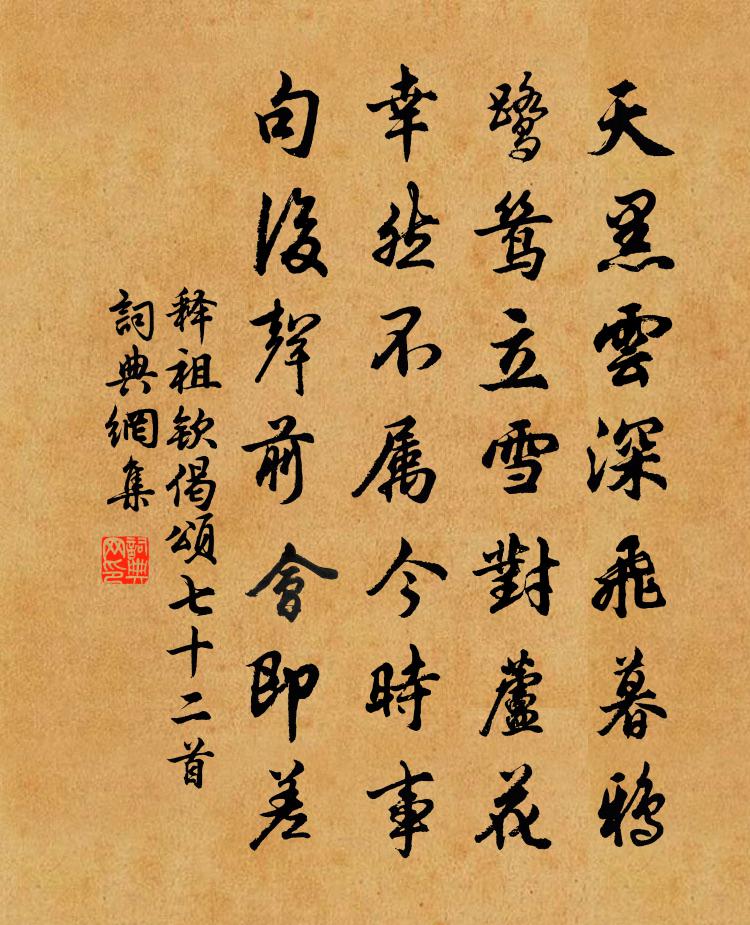 天黑雲深飛暮鴉
鷺鷥立雪對蘆花
幸然不属今時事
句後聲前會即差
释祖钦偈頌七十二首
詞典網集
詞典网印